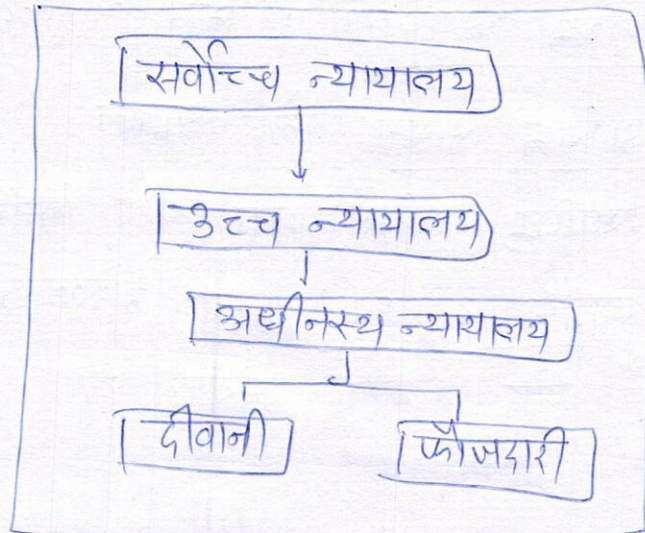 सर्वोच्च न्यायालय
उच्च न्यायालय
अधीनस्थ न्यायालय
दीवानी
फौजदारी